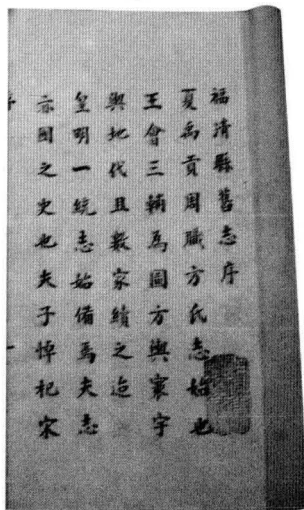 福清縣舊志序
夏禹貢周職方氏志始也
王會三輔為圖方輿寰宇
輿地代且數家績之迨
皇明一統志始備焉夫志
亦國之史也夫子悼杞宋
序
一